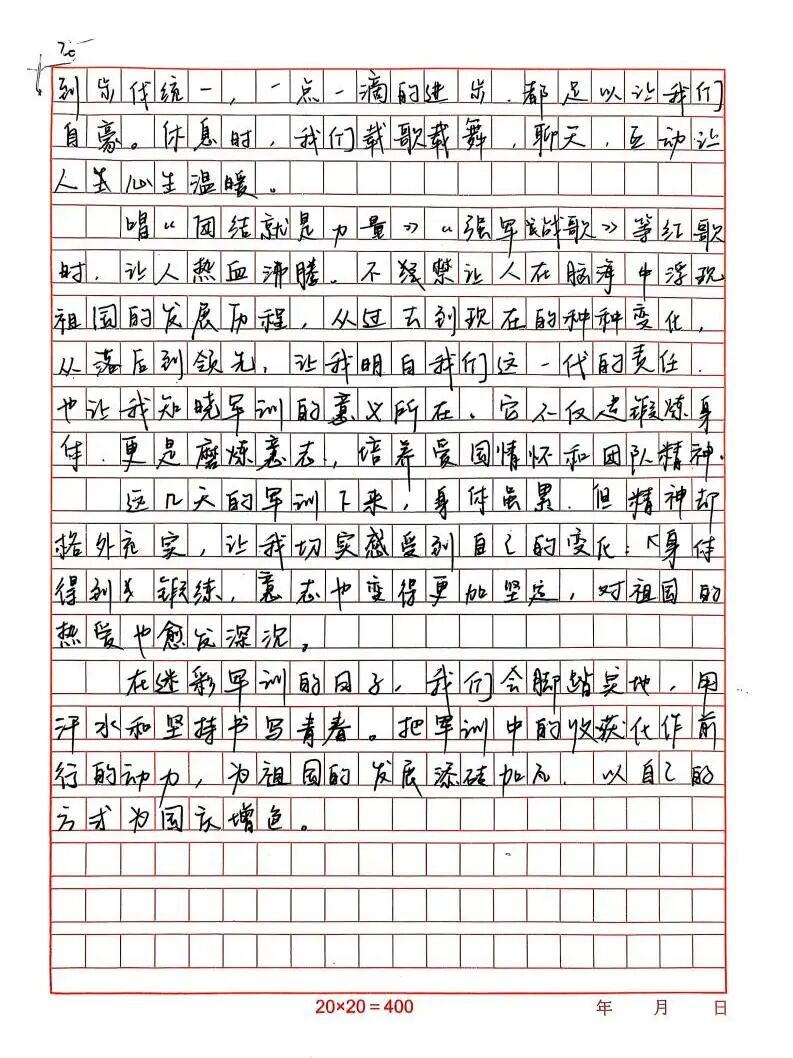 到步伐统一，一点一滴的进步.都足以让我们
自豪。休息时，我们载歌载舞，聊天，互动让
人生心生温暖。
唱“团结就是力量》“强军战歌》等红歌
时.让人热血沸腾。不经禁让人在脑海中浮现
祖国的发展历程，从过去到现在的种种变化，
从落后到领先，让我明白我们这一代的责任.
也让我知晓军训的意义所在。它不仅是锻炼身
体.更是磨炼意志，培养爱国情怀和团队精神.
这几天的军训下来，身体虽累.但精神却
格外充实，让我切实感受到自己的变化：身体
得到锻练，意志也变得更加坚定，对祖国的
热爱也愈发深沉。
在迷彩军训的日子，我们会脚踏实地，用
汗水和坚持书写青春。把军训中的收获化作前
行的动力，为祖国的发展添砖加瓦.以自己的
方式为国庆增色。
20×20=400 年 月 日